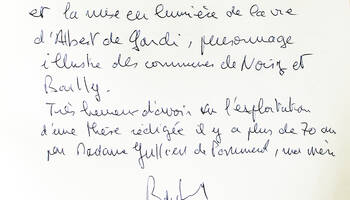 et la mise en lumière de la vie
d'Albert de Gondi, personnage
illustre des communes de Noisy et
Bailly.
Très heureux d'avoir vu l'exploitation
d'une thèse rédigée il y a plus de 70 ans
par Madame de, ma mère